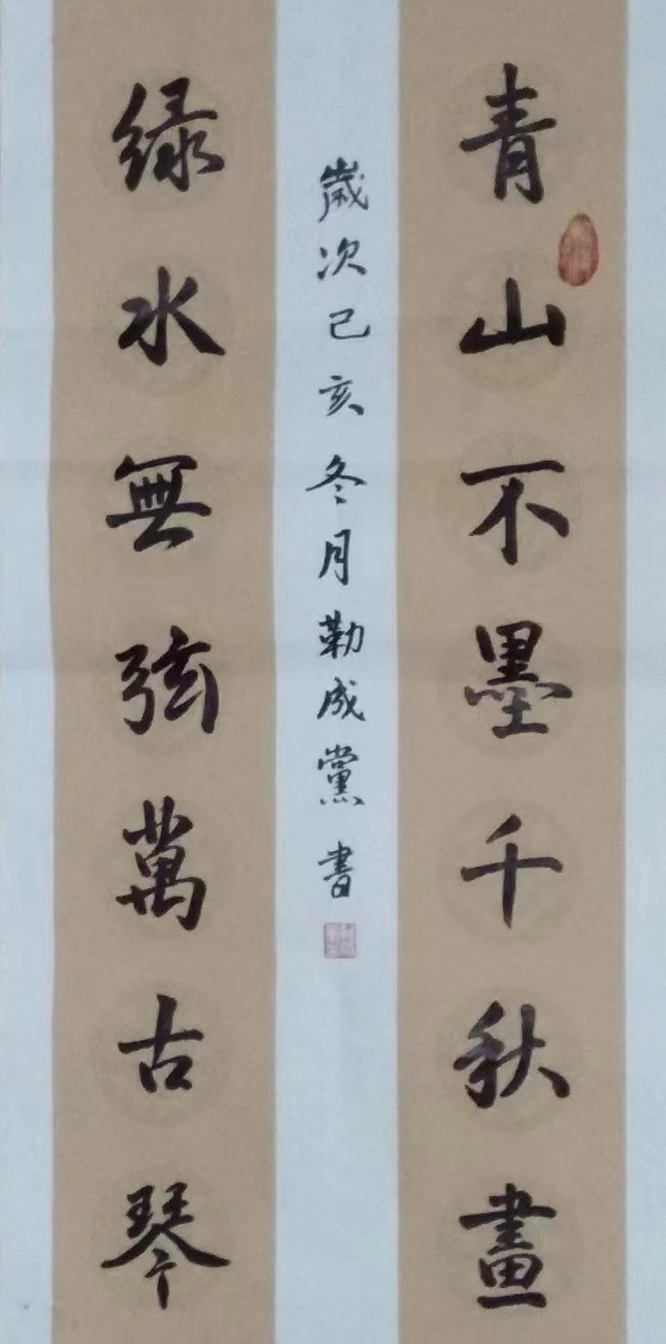 青山不墨千秋畫
歲次己亥冬月勒成黨書
绿水無弦萬古琴